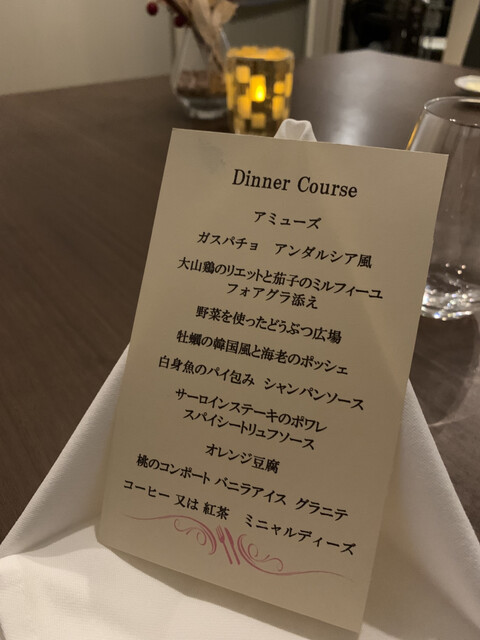 Dinner Course
アミューズ
ガスパチョ アンダルシア風
大山鶏のリエットと茄子のミルフィーユ
フォアグラ添え
野菜を使ったどうぶつ広場
牡蠣の韓国風と海老のポッシェ
白身魚のパイ包み シャンパンソース
サーロインステーキのポワレ
スパイシートリュフソース
オレンジ豆腐
桃のコンポート バニラアイス グラニテ
コーヒー 又は 紅茶 ミニャルディーズ